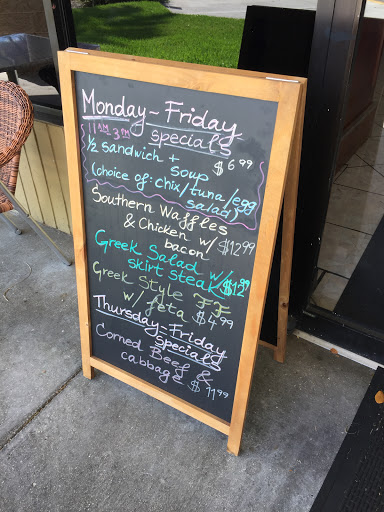 Monday - Friday
specials
11AM 3PM
1/2 sandwich +
soup $6.99
(choice of: chix/tuna/egg
salad)
Southern Waffles
& Chicken w/
bacon $12.99
Greek Salad w/
skirt steak $12.99
Greek Style FF
w/ feta $4.99
Thursday - Friday
Specials
Corned Beef &
cabbage $11.99